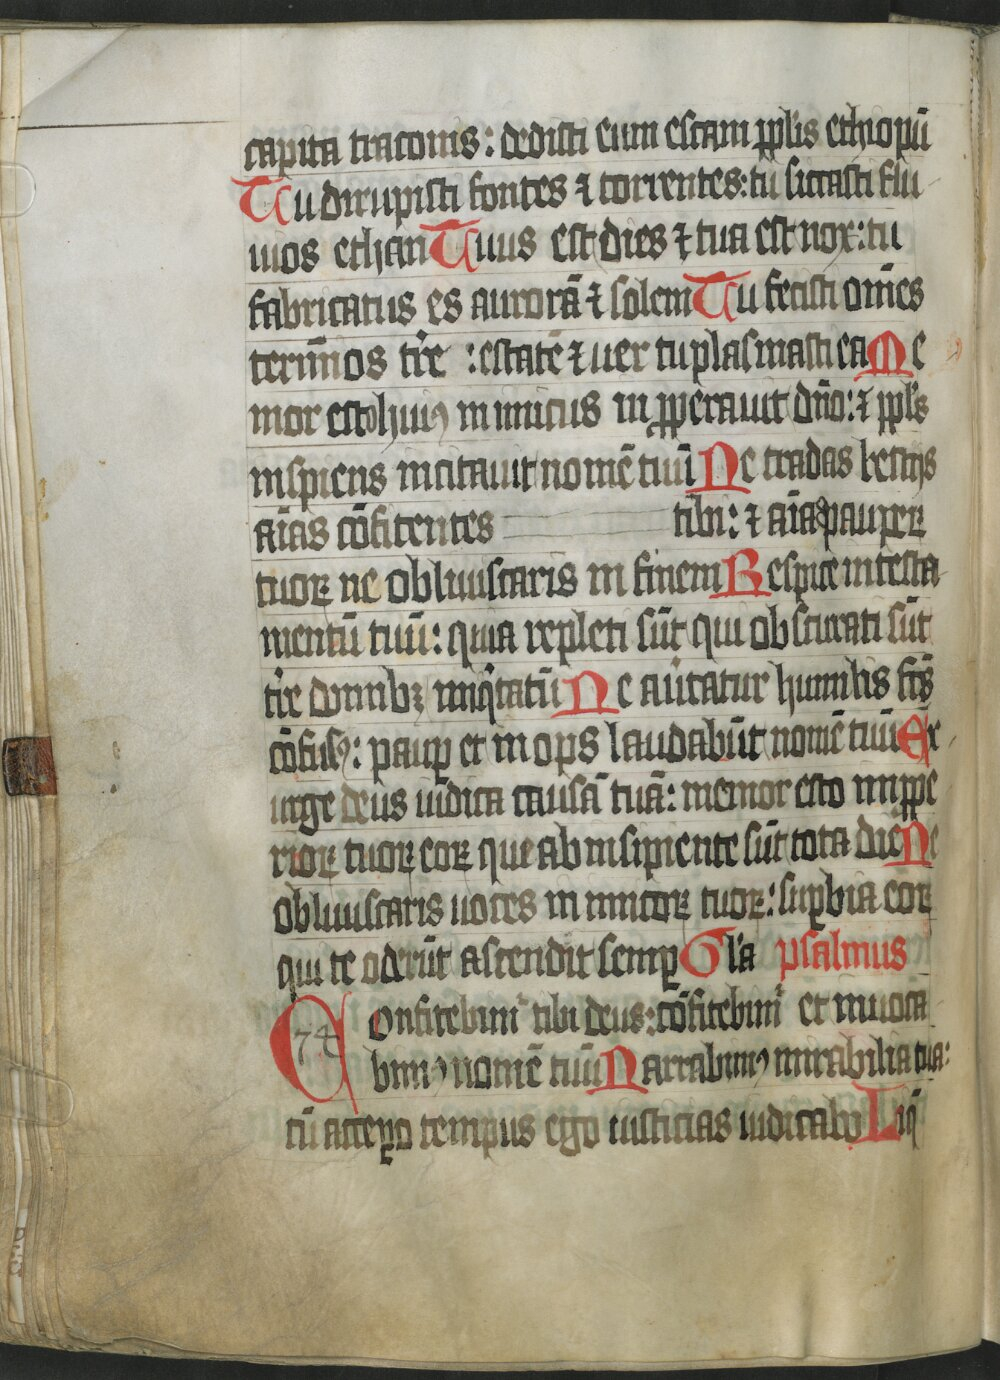 capita draconis: dedisti eum escam pplis ethiopū
Tu dirupisti fontes ⁊ torrentes: tu siccasti flu-
uios ethan Tuus est dies ⁊ tua est nox: tu
fabricatus es aurorā ⁊ solem Tu fecisti om̄es
term̄inos tr̄e : estatē ⁊ uer tu plasmasti ea Me
mor esto huiꝰ inimicus inꝓperauit dn̄o: ⁊ ppl̄s
insipiens incitauit nomē tuū Ne tradas bestijs
aīas cōfitentes tibi: ⁊ aīas pauper
tuoꝝ ne obliuiscaris in finem Respice in testa-
mentū tuū: quia repleti sūt qui obscurati sūt
tr̄e domibꝫ iniq̄tatū Ne auertatur humilis fcs̄
cōfusꝰ: paup̱ et inops laudabūt nomē tuū Ex-
urge deus iudica causā tuā: memor esto inꝓpe
rioꝝ tuoꝝ eoꝝ que ab insipiente sūt tota die Ne
obliuiscaris uoces inimicoꝝ tuoꝝ: sup̱bia eoꝝ
qui te oderūt ascendit semp̱ Gl̄a psalmus
74 Confitebimꝰ tibi deus: cōfitebimꝰ et inuoca
bimꝰ nomē tuū Narrabimꝰ mirabilia tua:
cū accep̱o tempus ego iusticias iudicabo Liq̄